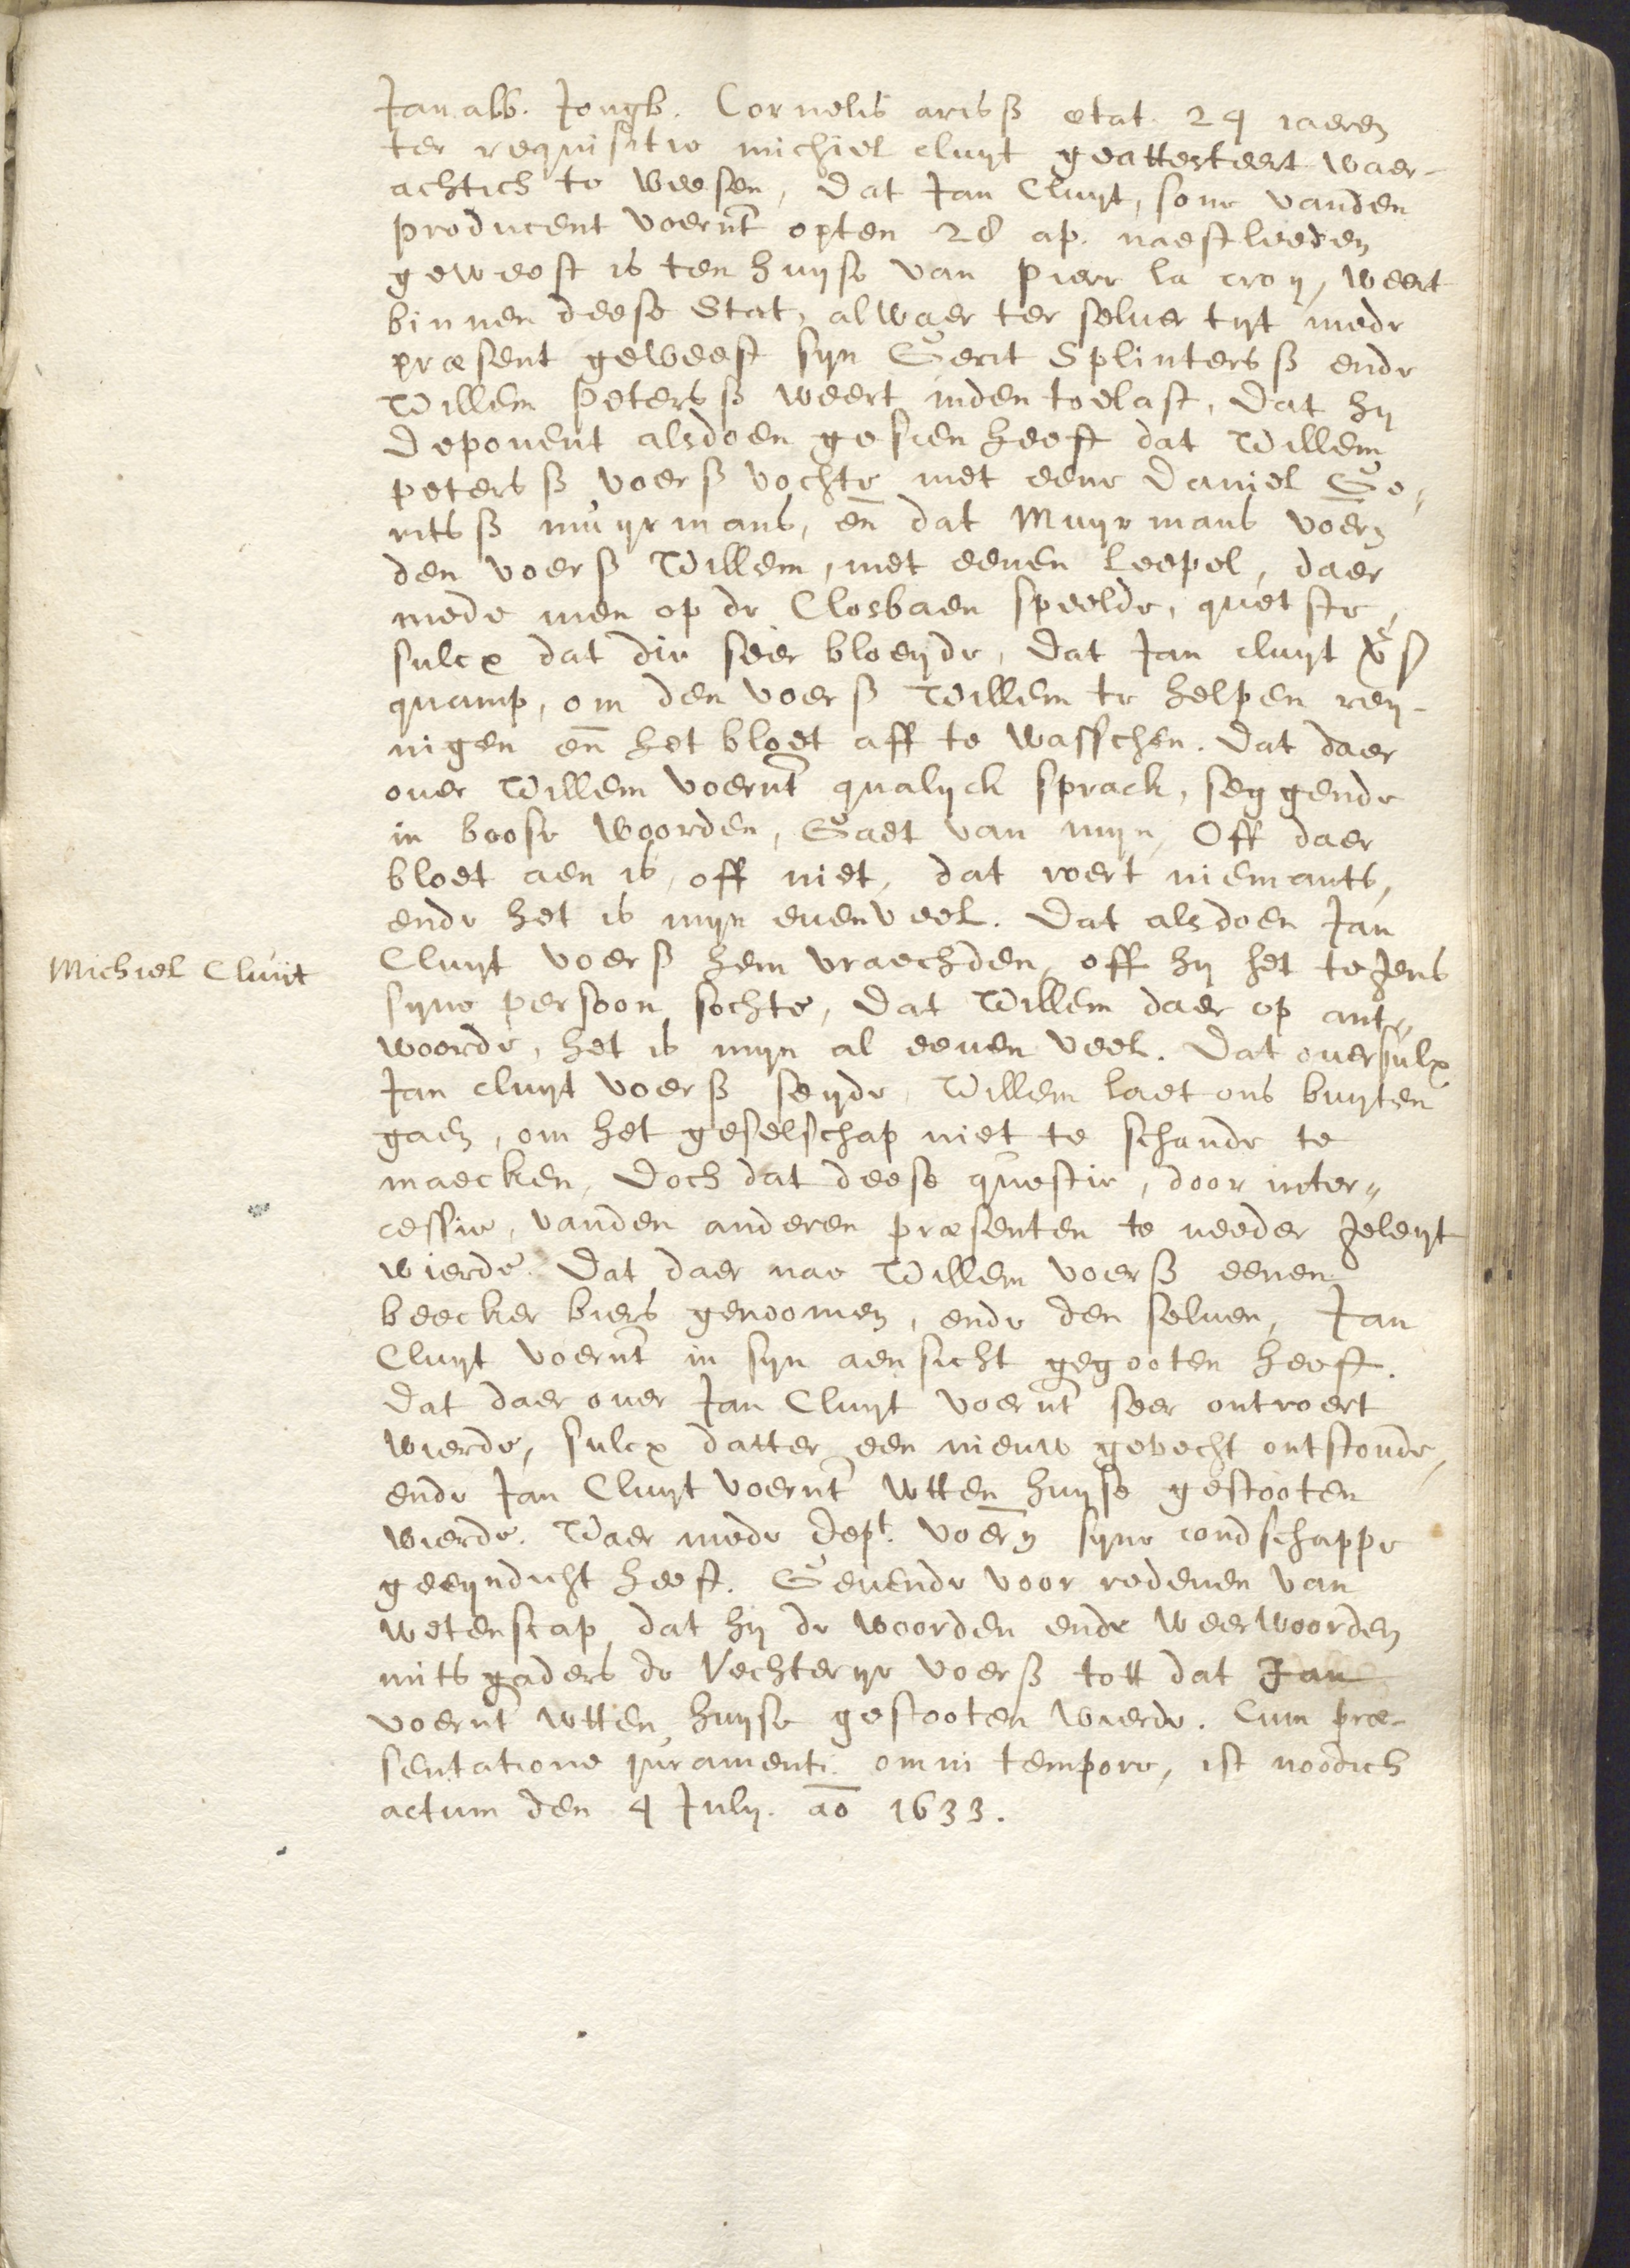 Jan alb. Jongh. Cornelis arisß etat. 24 iaeren
ter requisitie michiel cluyt geattesteert waer-
achtich te weesen, dat Jan Cluyt, sone vanden
producent voernt opten 28 ap. naestleeden
geweest is ten huyse van Pierr la croy, weert
binnen deese Stat, alwaer ter selver tyt mede
præsent geweest syn Gerit Splintersß ende
Willem Petersß weert inden toelast, dat hy
Deponent alsdoen gesien heeft dat Willem
petersß voersß vochte met eene Daniel Ge-
ritsß muyrmans, en dat Muyrmans voern
den voersß Willem, met eenen leepel, daer
mede men op de Closbaen speelde, quetste,
sulcx dat die seer bloeyde, dat Jan cluyt vs
quamp, om den voersß Willem te helpen rey-
nigen en het bloet aff te wasschen. Dat daer
over Willem voernt qualyck sprack, seggende
in boose woorden, Gaet van myn, Off daer
bloet aen is, off niet, dat roert niemants,
ende het is myn evenveel. Dat alsdoen Jan
Michiel Cluyt
Cluyt voersß hem vraechden, off hy het tejens
syne persoon sochte, dat Willem daer op ant-
woorde, het is myn al eeven veel. Dat oversulx
Jan cluyt voersß seyde, Willem laet ons buyten
gaen, om het geselschap niet te schande te
maecken, doch dat deese questie, door inter-
cessie, vanden anderen præsenten te needer geleyt
wierde. Dat daer nae Willem voersß eenen
beecker biers genoomen, ende den selven, Jan
Cluyt voernt in syn aensicht gegooten heeft.
dat daer over Jan Cluyt voernt seer ontroert
wierde, sulcx datter een nieuw gevecht ontstonde,
ende Jan Cluyt voernt wtten huyse gestooten
wierde. Waer mede dept. voern syne condschappe
geeyndicht heeft. Gevende voor redenen van
wetenscap, dat hy de woorden ende weerwoorden
mitsgaders de Vechterye voersß tott dat Jan
voernt wtten huyse gestooten wierde. Cum præ-
sentatione juramenti omni tempore, ist noodich
actum den 4 July. ao 1633.